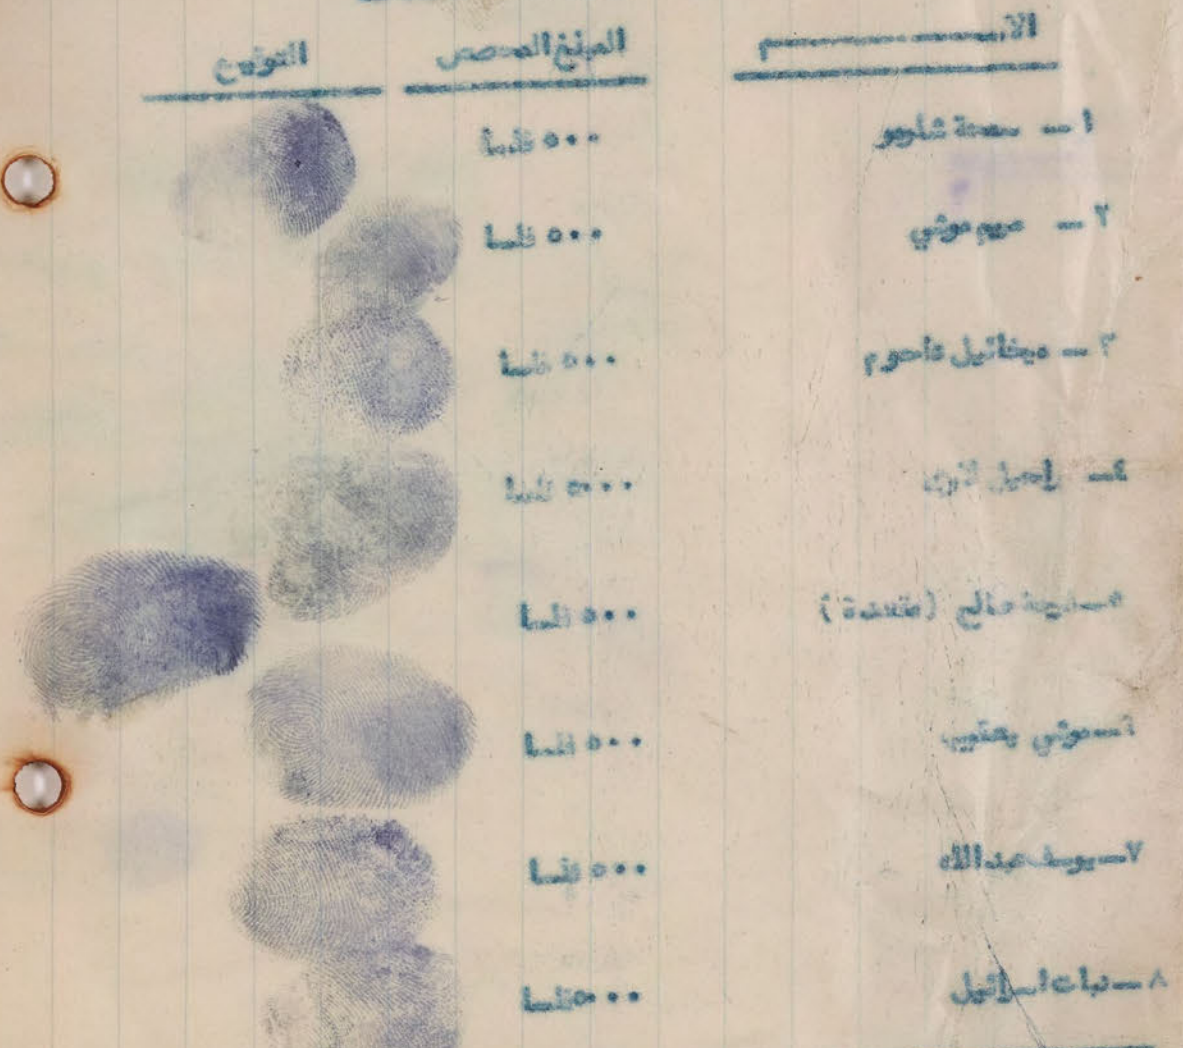 الاســـــــــــم المبلغ المخصص التوقيع
١ـ شاؤيو ٥٠٠ فلسا
٢ ـ مريم موشي ٥٠٠ فلسا
٣ ـ ميخائيل ناحوم ٥٠٠ فلسا
٤ـ ٥٠٠ فلسا
٥ـ صالح (مقعدة) ٥٠٠ فلسا
٦ـ موشي يعقوب ٥٠٠ فلسا
٧ـ يوسف عبدالله ٥٠٠ فلسا
٨ـ اسرائيل ٥٠٠ فلسا